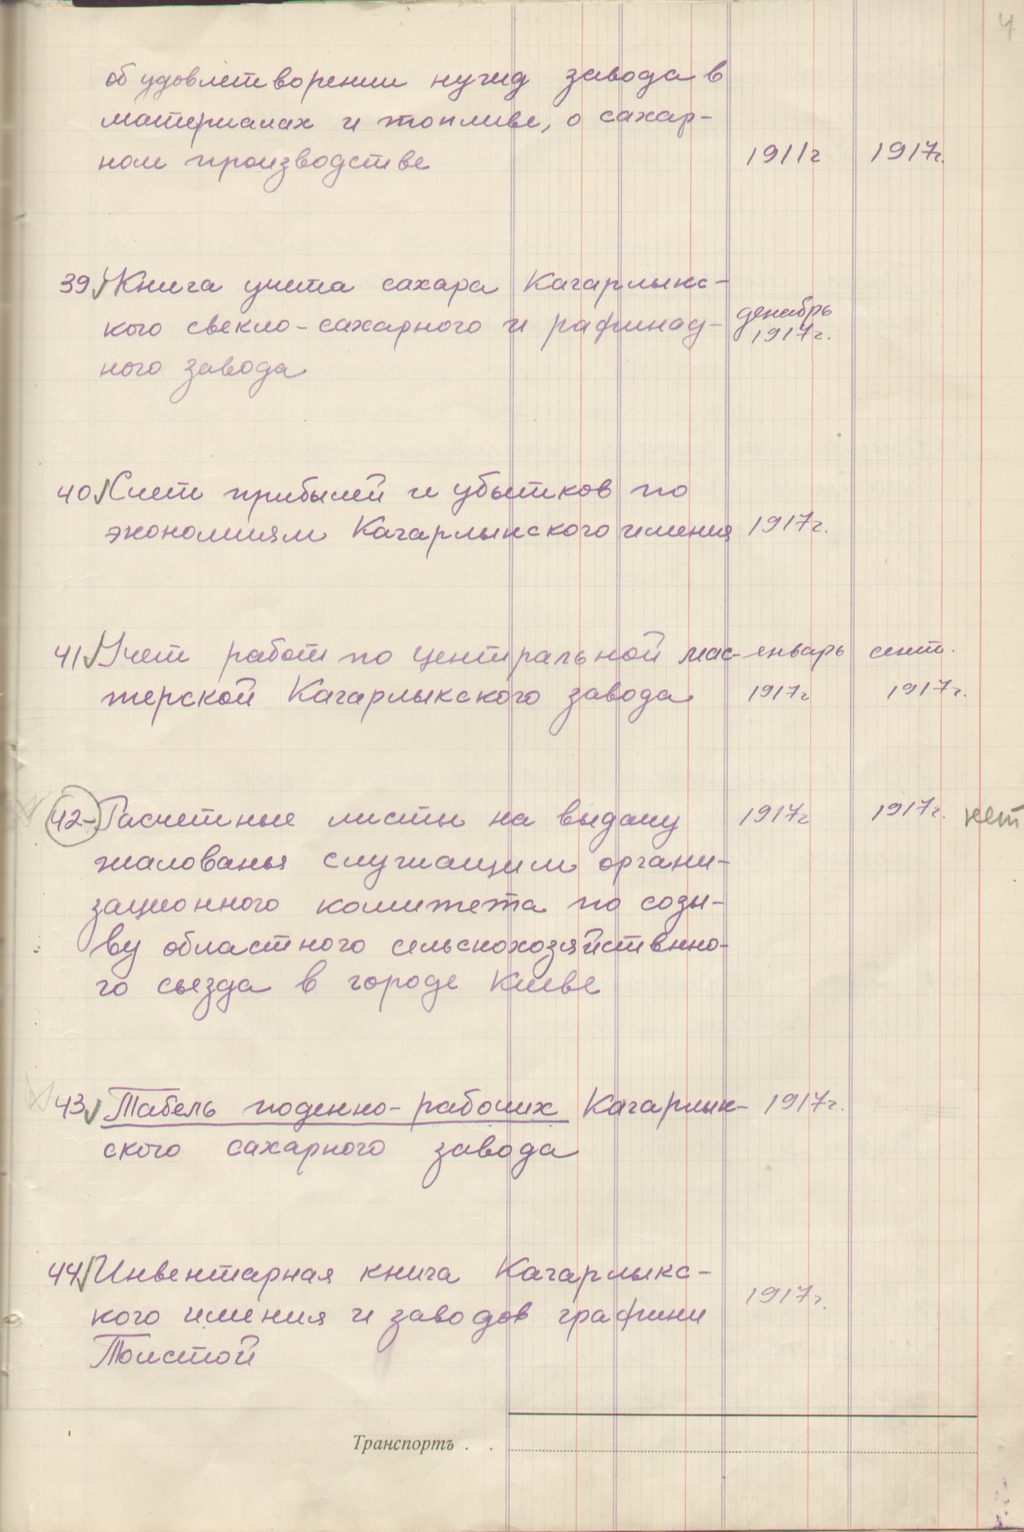 4
об удовлетворении нужд завода в
материалах и топливе, о сахар-
ном производстве 1911г 1917г.
39 Книга учета сахара Кагарлыкс-
кого свекло-сахарного и рафинад- декабрь
1917г.
ного завода
40 Счет прибылей и убытков по
экономиям Кагарлыкского имения 1917г.
41 Учет работ по центральной мас- январь сент.
терской Кагарлыкского завода 1917г 1917г.
42- Расчетные листы на выдачу 1917г 1917г. нет
жалованья служащим органи-
зационного комитета по созы-
ву областного сельскохозяйственно-
го съезда в городе Киеве
43 Табель поденно-рабочих Кагарлык- 1917г.
ского сахарного завода
44 Инвентарная книга Кагарлыкс-
кого имения и заводов графини 1917г.
Толстой
Транспортъ . .